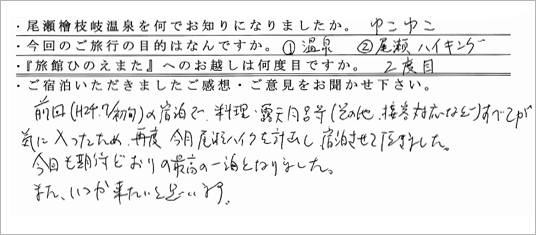 ・尾瀬檜枝岐温泉を何でお知りになりましたか。 ゆこゆこ
・今回のご旅行の目的はなんですか。 ①温泉 ②尾瀬ハイキング
・『旅館ひのえまた』へのお越しは何度目ですか。 2度目
・ご宿泊いただきましたご感想・ご意見をお聞かせ下さい。
前回(H24.7/初旬)の宿泊で、料理・露天風呂等(その他、接客対応など)すべてが
気に入ったため、再度 今月尾瀬ハイクを計画し 宿泊させて頂きました。
今回も期待どおりの最高の一泊となりました。
また、いつか来たいと思います。